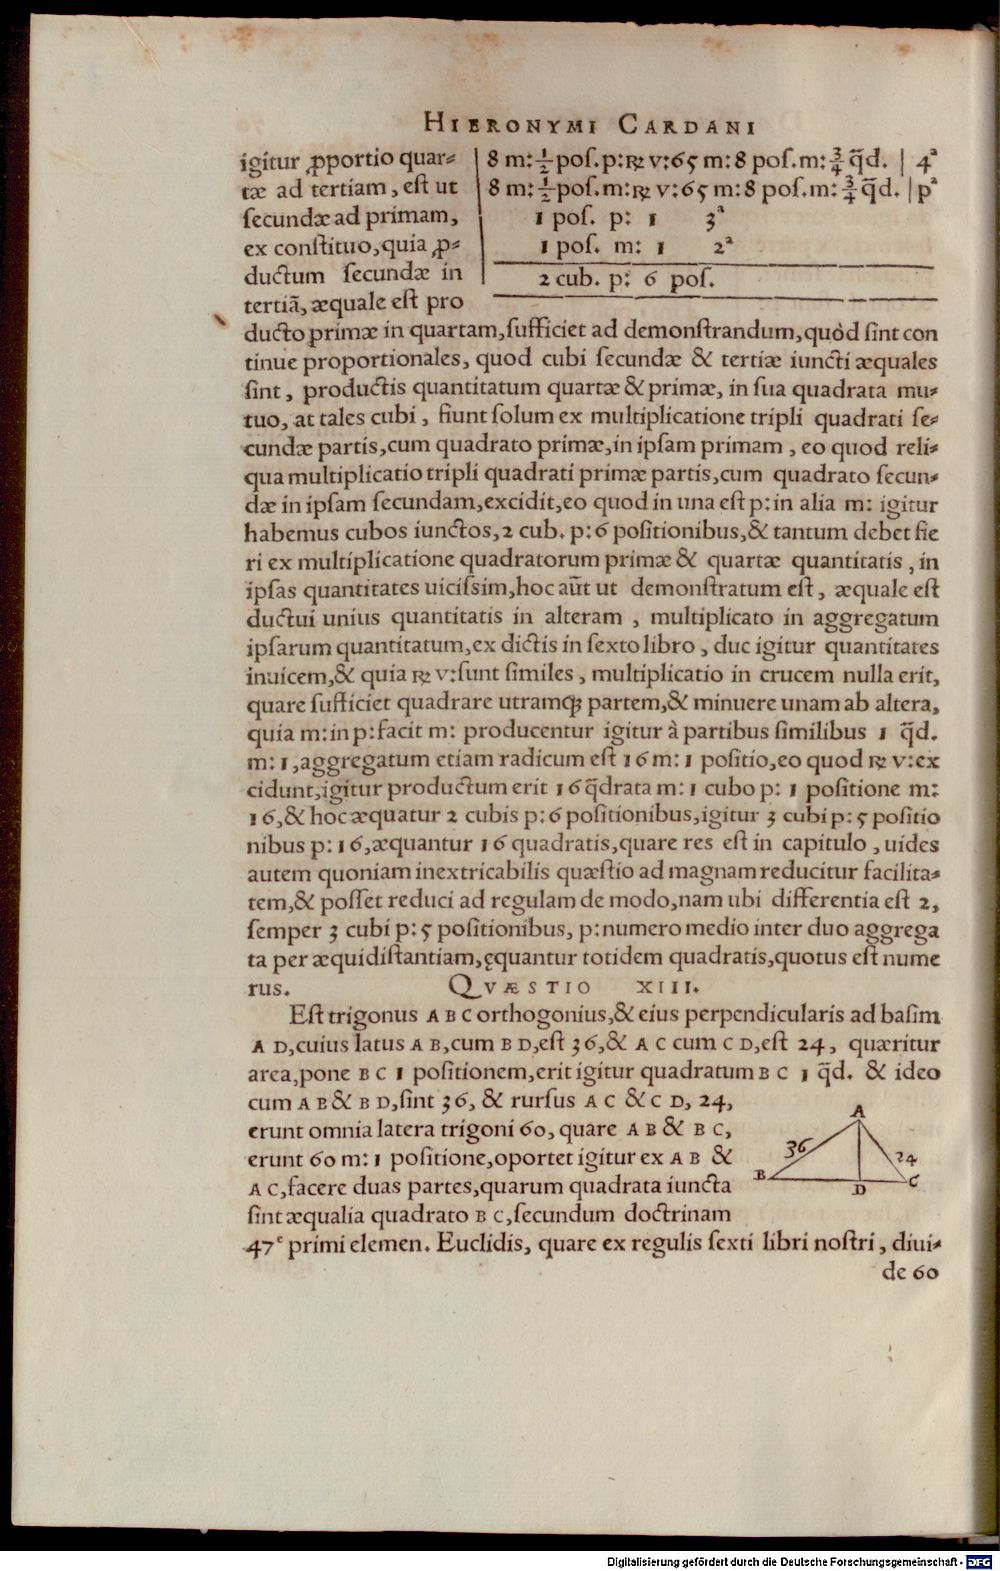 HIERONYMI CARDANI
igitur ꝓportio quar⸗
tæ ad tertiam, est ut
secundæ ad primam,
ex constituo, quia ꝓ⸗
ductum secundæ in
tertiã, æquale est pro
8 m: 1/2 pos. p: ℞ v: 65 m: 8 pos. m: 3/4 q̃d. | 4ª
8 m: 1/2 pos. m: ℞ v: 65 m: 8 pos. m: 3/4 q̃d. | pª
1 pos. p: 1 3ª
1 pos. m: 1 2ª
2 cub. p: 6 pos.
ducto primæ in quartam, sufficiet ad demonstrandum, quòd sint con
tinue proportionales, quod cubi secundæ & tertiæ iuncti æquales
sint, productis quantitatum quartæ & primæ, in sua quadrata mu⸗
tuo, at tales cubi, fiunt solum ex multiplicatione tripli quadrati se⸗
cundæ partis, cum quadrato primæ, in ipsam primam, eo quod reli⸗
qua multiplicatio tripli quadrati primæ partis, cum quadrato secun⸗
dæ in ipsam secundam, excidit, eo quod in una est p: in alia m: igitur
habemus cubos iunctos, 2 cub. p: 6 positionibus, & tantum debet fie
ri ex multiplicatione quadratorum primæ & quartæ quantitatis, in
ipsas quantitates uicissim, hoc aũt ut demonstratum est, æquale est
ductui unius quantitatis in alteram, multiplicato in aggregatum
ipsarum quantitatum, ex dictis in sexto libro, duc igitur quantitates
inuicem, & quia ℞ v: sunt similes, multiplicatio in crucem nulla erit,
quare sufficiet quadrare utramqꝫ partem, & minuere unam ab altera,
quia m: in p: facit m: producentur igitur à partibus similibus 1 q̃d.
m: 1, aggregatum etiam radicum est 16 m: 1 positio, eo quod ℞ v: ex
cidunt, igitur productum erit 16 q̃drata m: 1 cubo p: 1 positione m:
16, & hoc æquatur 2 cubis p: 6 positionibus, igitur 3 cubi p: 5 positio
nibus p: 16, æquantur 16 quadratis, quare res est in capitulo, uides
autem quoniam inextricabilis quæstio ad magnam reducitur facilita⸗
tem, & posset reduci ad regulam de modo, nam ubi differentia est 2,
semper 3 cubi p: 5 positionibus, p: numero medio inter duo aggrega
ta per æquidistantiam, ęquantur totidem quadratis, quotus est nume
rus. QVÆSTIO XIII.
Est trigonus A B C orthogonius, & eius perpendicularis ad basim
A D, cuius latus A B, cum B D, est 36, & A C cum C D, est 24, quæritur
area, pone B C 1 positionem, erit igitur quadratum B C 1 q̃d. & ideo
cum A B & B D, sint 36, & rursus A C & C D, 24,
erunt omnia latera trigoni 60, quare A B & B C,
erunt 60 m: 1 positione, oportet igitur ex A B &
A C, facere duas partes, quarum quadrata iuncta
sint æqualia quadrato B C, secundum doctrinam
A
36
24
B
D
C
47ᵉ primi elemen. Euclidis, quare ex regulis sexti libri nostri, diui⸗
de 60
Digitalisierung gefördert durch die Deutsche Forschungsgemeinschaft - DFG